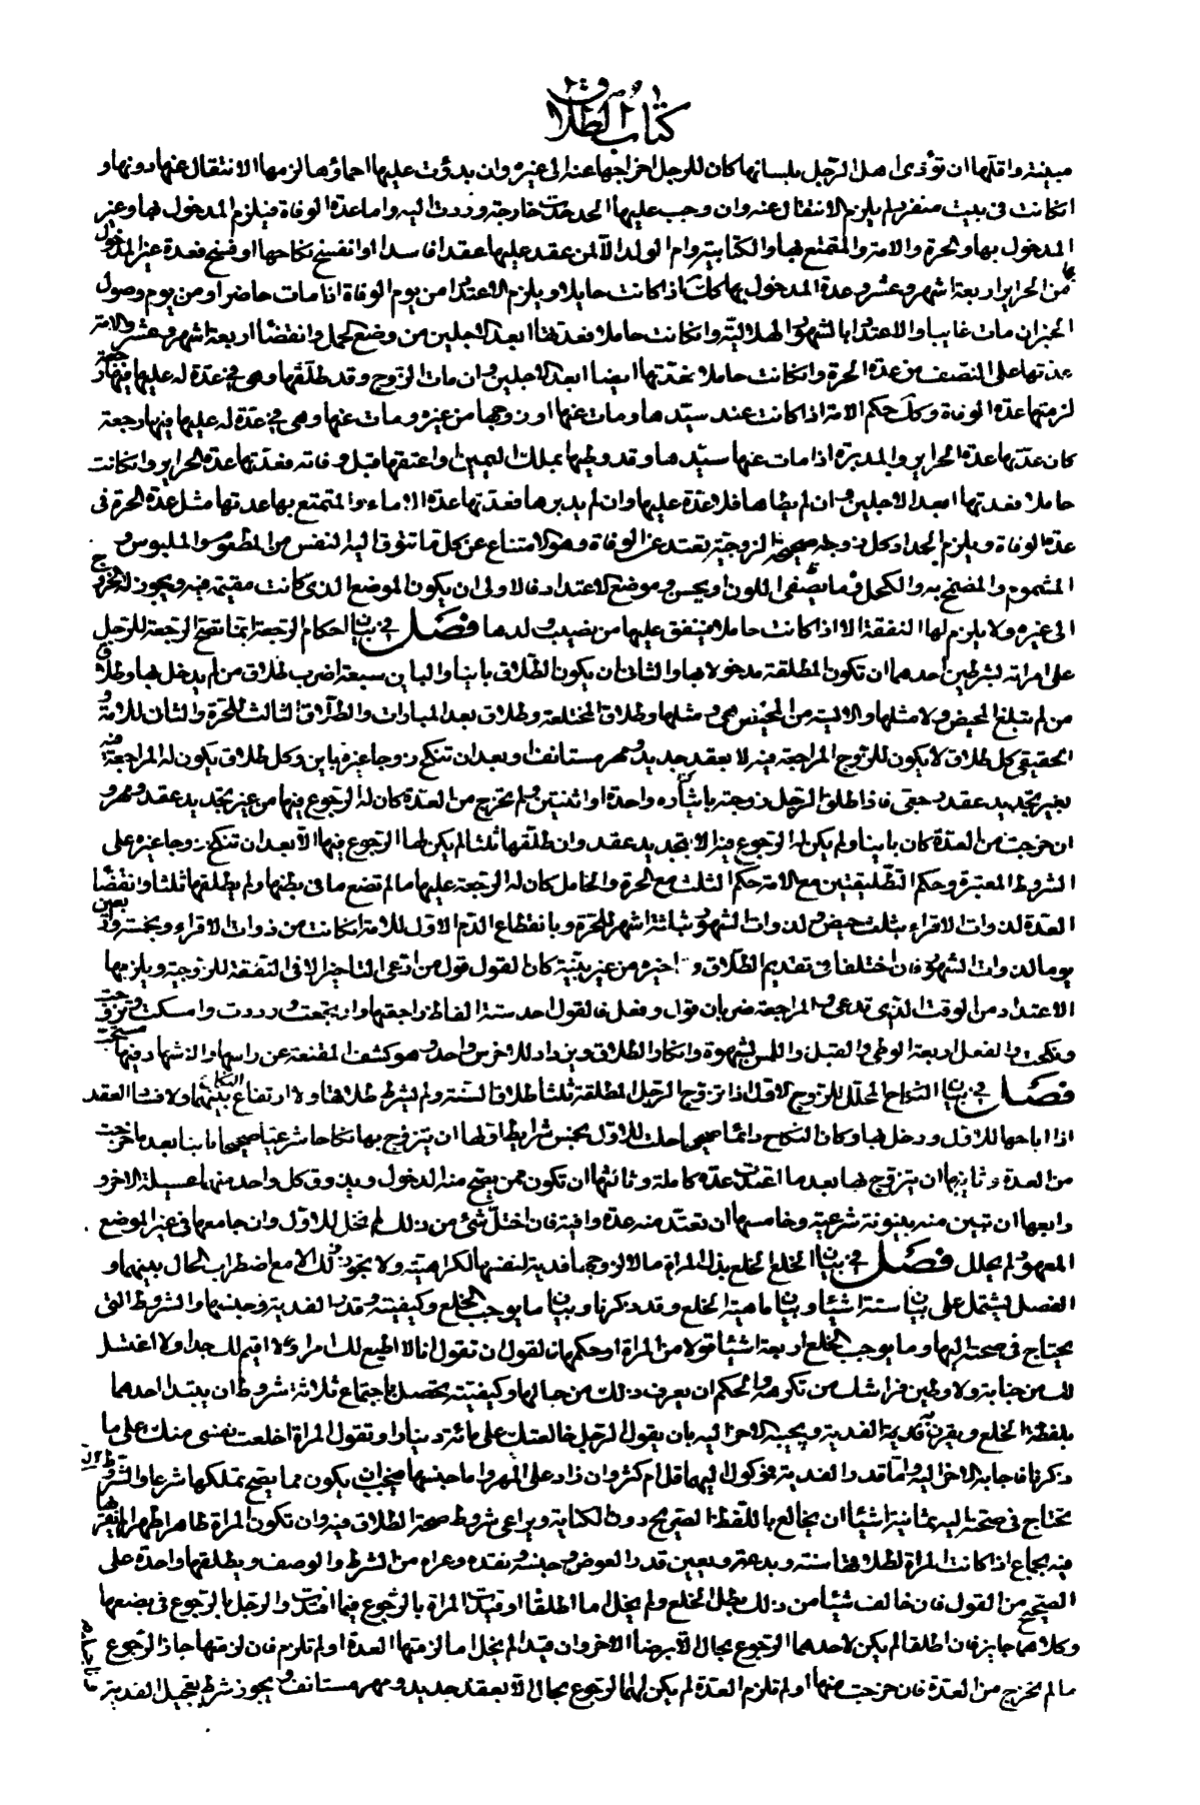 كتاب الطلاق
مبينة واقلها ان تؤذى اهل الرجل بلسانها كان للرجل اخراجها عنه الى غيره وان بذؤت عليها احماؤها لزمها الانتقال عنها دونها و
انكانت فى بيت منفرد لم يلزم الانتقال عنه وان وجب عليها الحد حدت خارجة وردت اليه واما عدة الوفاة فيلزم المدخول بها وغير
المدخول بها والحرة والامة والمتمتع بها والكتابية وام الولد الا لمن عقد عليها عقدا فاسدا او انفسخ نكاحها او فسخ فعدة غير المدخول
بها من الحراير اربعة اشهر وعشر وعدة المدخول بها كك اذا كانت حايلا ويلزم الاعتداد من يوم الوفاة اذا مات حاضرا ومن يوم وصول
الخبر ان مات غايبا والاعتداد بالشهور الهلالية وانكانت حاملا فعدتها ابعد الاجلين من وضع الحمل وانقضاء اربعة اشهر وعشر والامة
عدتها على النصف من عدة الحرة وانكانت حاملا فعدتها ايضا ابعد الاجلين وان مات الزوج وقد طلقها وهى فى عدة له عليها فيها رجعة
لزمتها عدة الوفاة وكك حكم الامة اذا كانت عند سيدها ومات عنها او زوجها من غيره ومات عنها وهى فى عدة له عليها فيها رجعة
كان عدتها عدة الحراير والمدبرة اذا مات عنها سيدها وقد وطيها بملك اليمين واعتقها قبل وفاته فعدتها عدة الحراير وانكانت
حاملا فعدتها ابعد الاجلين وان لم يطاها فلا عدة عليها وان لم يدبرها فعدتها عدة الاماء والمتمتع بها عدتها مثل عدة الحرة فى
عدة الوفاة ويلزم الحداد كل زوجة صحيحة الزوجية تعتد عن الوفاة وهو الامتناع عن كل ما تتوق اليه النفس من المطعوم والملبوس و
المشموم والمضمخ به والكحل وما يصفى اللون ويحسن وموضع الاعتداد فالاولى ان يكون الموضع الذى كانت مقيمة فيه ويجوز لها الخروج
الى غيره ولا يلزم لها النفقة الا اذا كانت حاملا فينفق عليها من نصيب ولدها فصل فى بيان احكام الرجعة انما تصح الرجعة للرجل
على امراته بشرطين احدهما ان تكون المطلقة مدخولا بها والثانى ان يكون الطلاق باينا والباين سبعة اضرب طلاق من لم يدخل بها وطلاق
من لم تبلغ المحيض ولا مثلها والايسة من المحيض هى ومثلها وطلاق المختلعة وطلاق بعد المبارات والطلاق الثالث للحرة والثانى للامة و
الحقيقى كل طلاق لا يكون للزوج المراجعة فيه الا بعقد جديد ومهر مستانف وبعد ان تنكح زوجا غيره باين وكل طلاق يكون له المراجعة فيه
بغير تجديد عقد رجعى فاذا طلق الرجل زوجته واحدة او اثنتين ولم تخرج من العدة كان له الرجوع فيها من غير تجديد عقد ومهر و
ان خرجت من العدة كان باينا ولم يكن له الرجوع فيها الا بتجديد عقد وان طلقها ثلثا لم يكن لهما الرجوع فيها الا بعد ان تنكح زوجا غيره على
الشروط المعتبرة وحكم التطليقتين مع الامة حكم الثلث مع الحرة والحامل كان له الرجعة عليها ما لم تضع ما فى بطنها ولم يطلقها ثلثا وانقضاء
العدة لذوات الاقراء بثلث حيض ولذوات الشهور بثلثة اشهر للحرة وبانقطاع الدم الاول للامة انكانت من ذوات الاقراء وبخمسة واربعين
يوما لذوات الشهور فان اختلفا فى تقديم الطلاق وتاخيره من غير بينة كان القول قول من ادعى التاخير الا فى النفقة للزوجية ويلزمها
الاعتداد من الوقت الذى تدعى والمراجعة ضربان قول وفعل فالقول احد ستة الفاظ راجعتها وارتجعت ورددت وامسكت وتزوجت
ونكحت والفعل اربعة الوطى والقبلة واللمس بشهوة وانكار الطلاق ويزداد للاخرس واحد وهو كشف المقنعة عن راسها والاشهاد فيها مستحب
فصل فى بيان النكاح المحلل للزوج الاول اذا تزوج الرجل المطلقة ثلثا طلاق السنة ولم يشرط طلاقها ولا ارتفاع النكاح بينهما ولا فساد العقد
اذا اباحها للاول ودخل بها وكان النكاح دائما صحيحا حلت للاول بخمس شرايط اولها ان يتزوج بها نكاحا شرعيا صحيحا ثابتا بعد ما خرجت
من العدة وثانيها ان يتزوج بها بعد ما اعتدت عدة كاملة وثالثها ان تكون ممن يصح منه الدخول ويذوق كل واحد منهما عسيلة الاخر و
رابعها ان تبين منه بينونة شرعية وخامسها ان تعتد منه عدة وافية فان اختل شئ من ذلك لم تحل للاول وان جامعها فى غير الموضع
المعهود لم يحلل فصل فى بيان الخلع الخلع بذل المراة مالا لزوجها فدية لنفسها لكراهيته ولا يجوز ذلك الا مع اضطراب الحال بينهما و
الفصل يشتمل على بيان ستة اشياء بيان ماهية الخلع وقد ذكرنا وبيان ما يوجب الخلع وكيفيته وقدر الفدية وجنسها والشروط التى
يحتاج فى صحته اليها وما يوجب الخلع اربعة اشياء قولا من المراة او حكما فالقول ان تقول انا لا اطيع لك امرا ولا اقيم لك حدا ولا اغتسل
لك من جنابة ولاوطين فراشك من تكرهه والحكم ان يعرف ذلك من حالها وكيفيته تحصل باجتماع ثلاثة شروط ان يبتدا احدهما
بلفظة الخلع ويقرن به قدر الفدية ويجيبه الاخر اليه بان يقول الرجل خالعتك على مائة دينار او تقول المراة اخلعت نفسى منك على ما
ذكرنا فاجابه الاخر اليه واما قدر الفدية فموكول اليهما قل ام كثر وان زاد على المهر واما جنسها فيجب ان يكون مما يصح تملكها شرعا والشروط التى
تحتاج فى صحته اليه ثمانية اشياء ان يخالع باللفظ الصريح دون الكناية ويراعى شروط صحة الطلاق فيه وان تكون المراة طاهرا طهرا لم يقربها
فيه بجماع اذا كانت المراة لطلاقها سنة وبدعة وتعيين قدر العوض وجنسه ونقده وعراه من الشرط والوصف ويطلقها واحدة على
الصحيح من القول فان خالف شيئا من ذلك بطل الخلع ولم يخل اما اطلقا او قيدت المراة بالرجوع فيما افتدت والرجل بالرجوع فى بضعها
وكلاهما جايز فان اطلقا لم يكن لاحدهما الرجوع بحال الا برضاء الاخر وان قيد لم يخل اما لزمتها العدة او لم تلزم فان لزمتها جاز الرجوع
ما لم تخرج من العدة فان خرجت منها او لم تلزم العدة لم يكن لهما الرجوع بحال الا بعقد جديد ومهر مستانف ويجوز شرط تعجيل الفدية